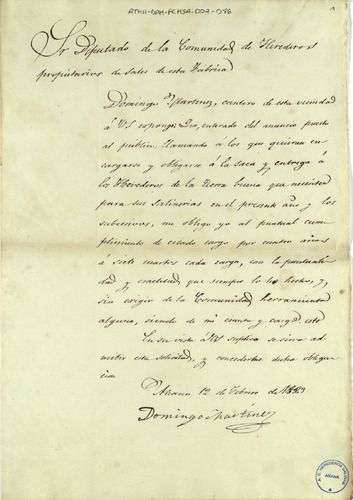 ATHA-DAH-FCHSA-007-086
1
Sr Diputado de la Comunidad de Herederos
propietarios de Sales de esta Fabrica
Domingo Martinez, cantero de esta vecindad
á VS espone: Que, enterado del anuncio puesto
al público, llamando á los que quieran en-
cargarse y obligarse á la saca y entrega
á los Herederos de la tierra buena que necesiten
para sus Salinarias en el presente año y los
subcesivos, me obligo yo al puntual cum-
plimiento de citado cargo por cuatro años
á siete cuartos cada carga, con la puntuali-
dad y exactitud, que siempre lo he hecho, y
sin exigir de la Comunidad herramienta
alguna, siendo de mi cuenta y cargo esto
En su vista á VS suplica se sirva ad-
mitir esta solicitud, y concederles dicha obliga-
cion
Añana 12 de Febrero de 1883
Domingo Martinez
AÑANA